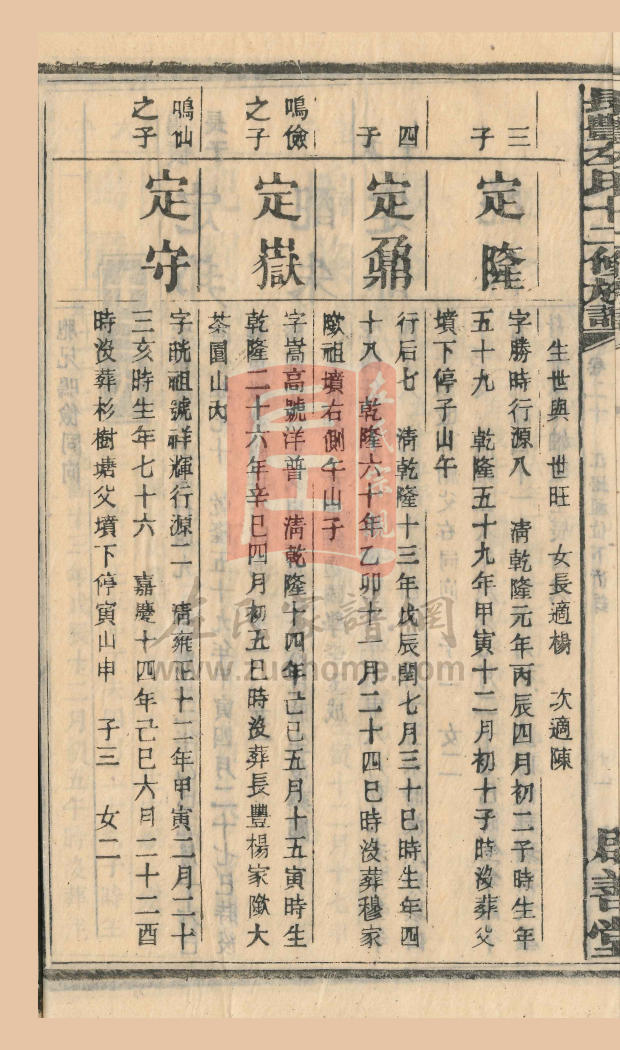 長豐左氏十二修族譜
生世與 世旺 女長適楊 次適陳
三子
定隆
字勝時行源八 清乾隆元年丙辰四月初二子時生年
五十九 乾隆五十九年甲寅十二月初十子時沒葬父
墳下停子山午
四子
定鼐
行后七 清乾隆十三年戊辰閏七月三十巳時生年四
十八 乾隆六十年乙卯十一月二十四巳時沒葬穆家
墩祖墳右側午山子
鳴儉之子
定嶽
字嵩高號洋普 清乾隆十四年己巳五月十五寅時生
乾隆二十六年辛巳四月初五巳時沒葬長豐楊家墩大
茶園山內
鳴仙之子
定守
字晄祖號祥輝行源二 清雍正十二年甲寅二月二十
三亥時生年七十六 嘉慶十四年己巳六月二十二酉
時沒葬杉樹塘父墳下停寅山申 子三 女二
左氏家譜網
www.zuohome.com